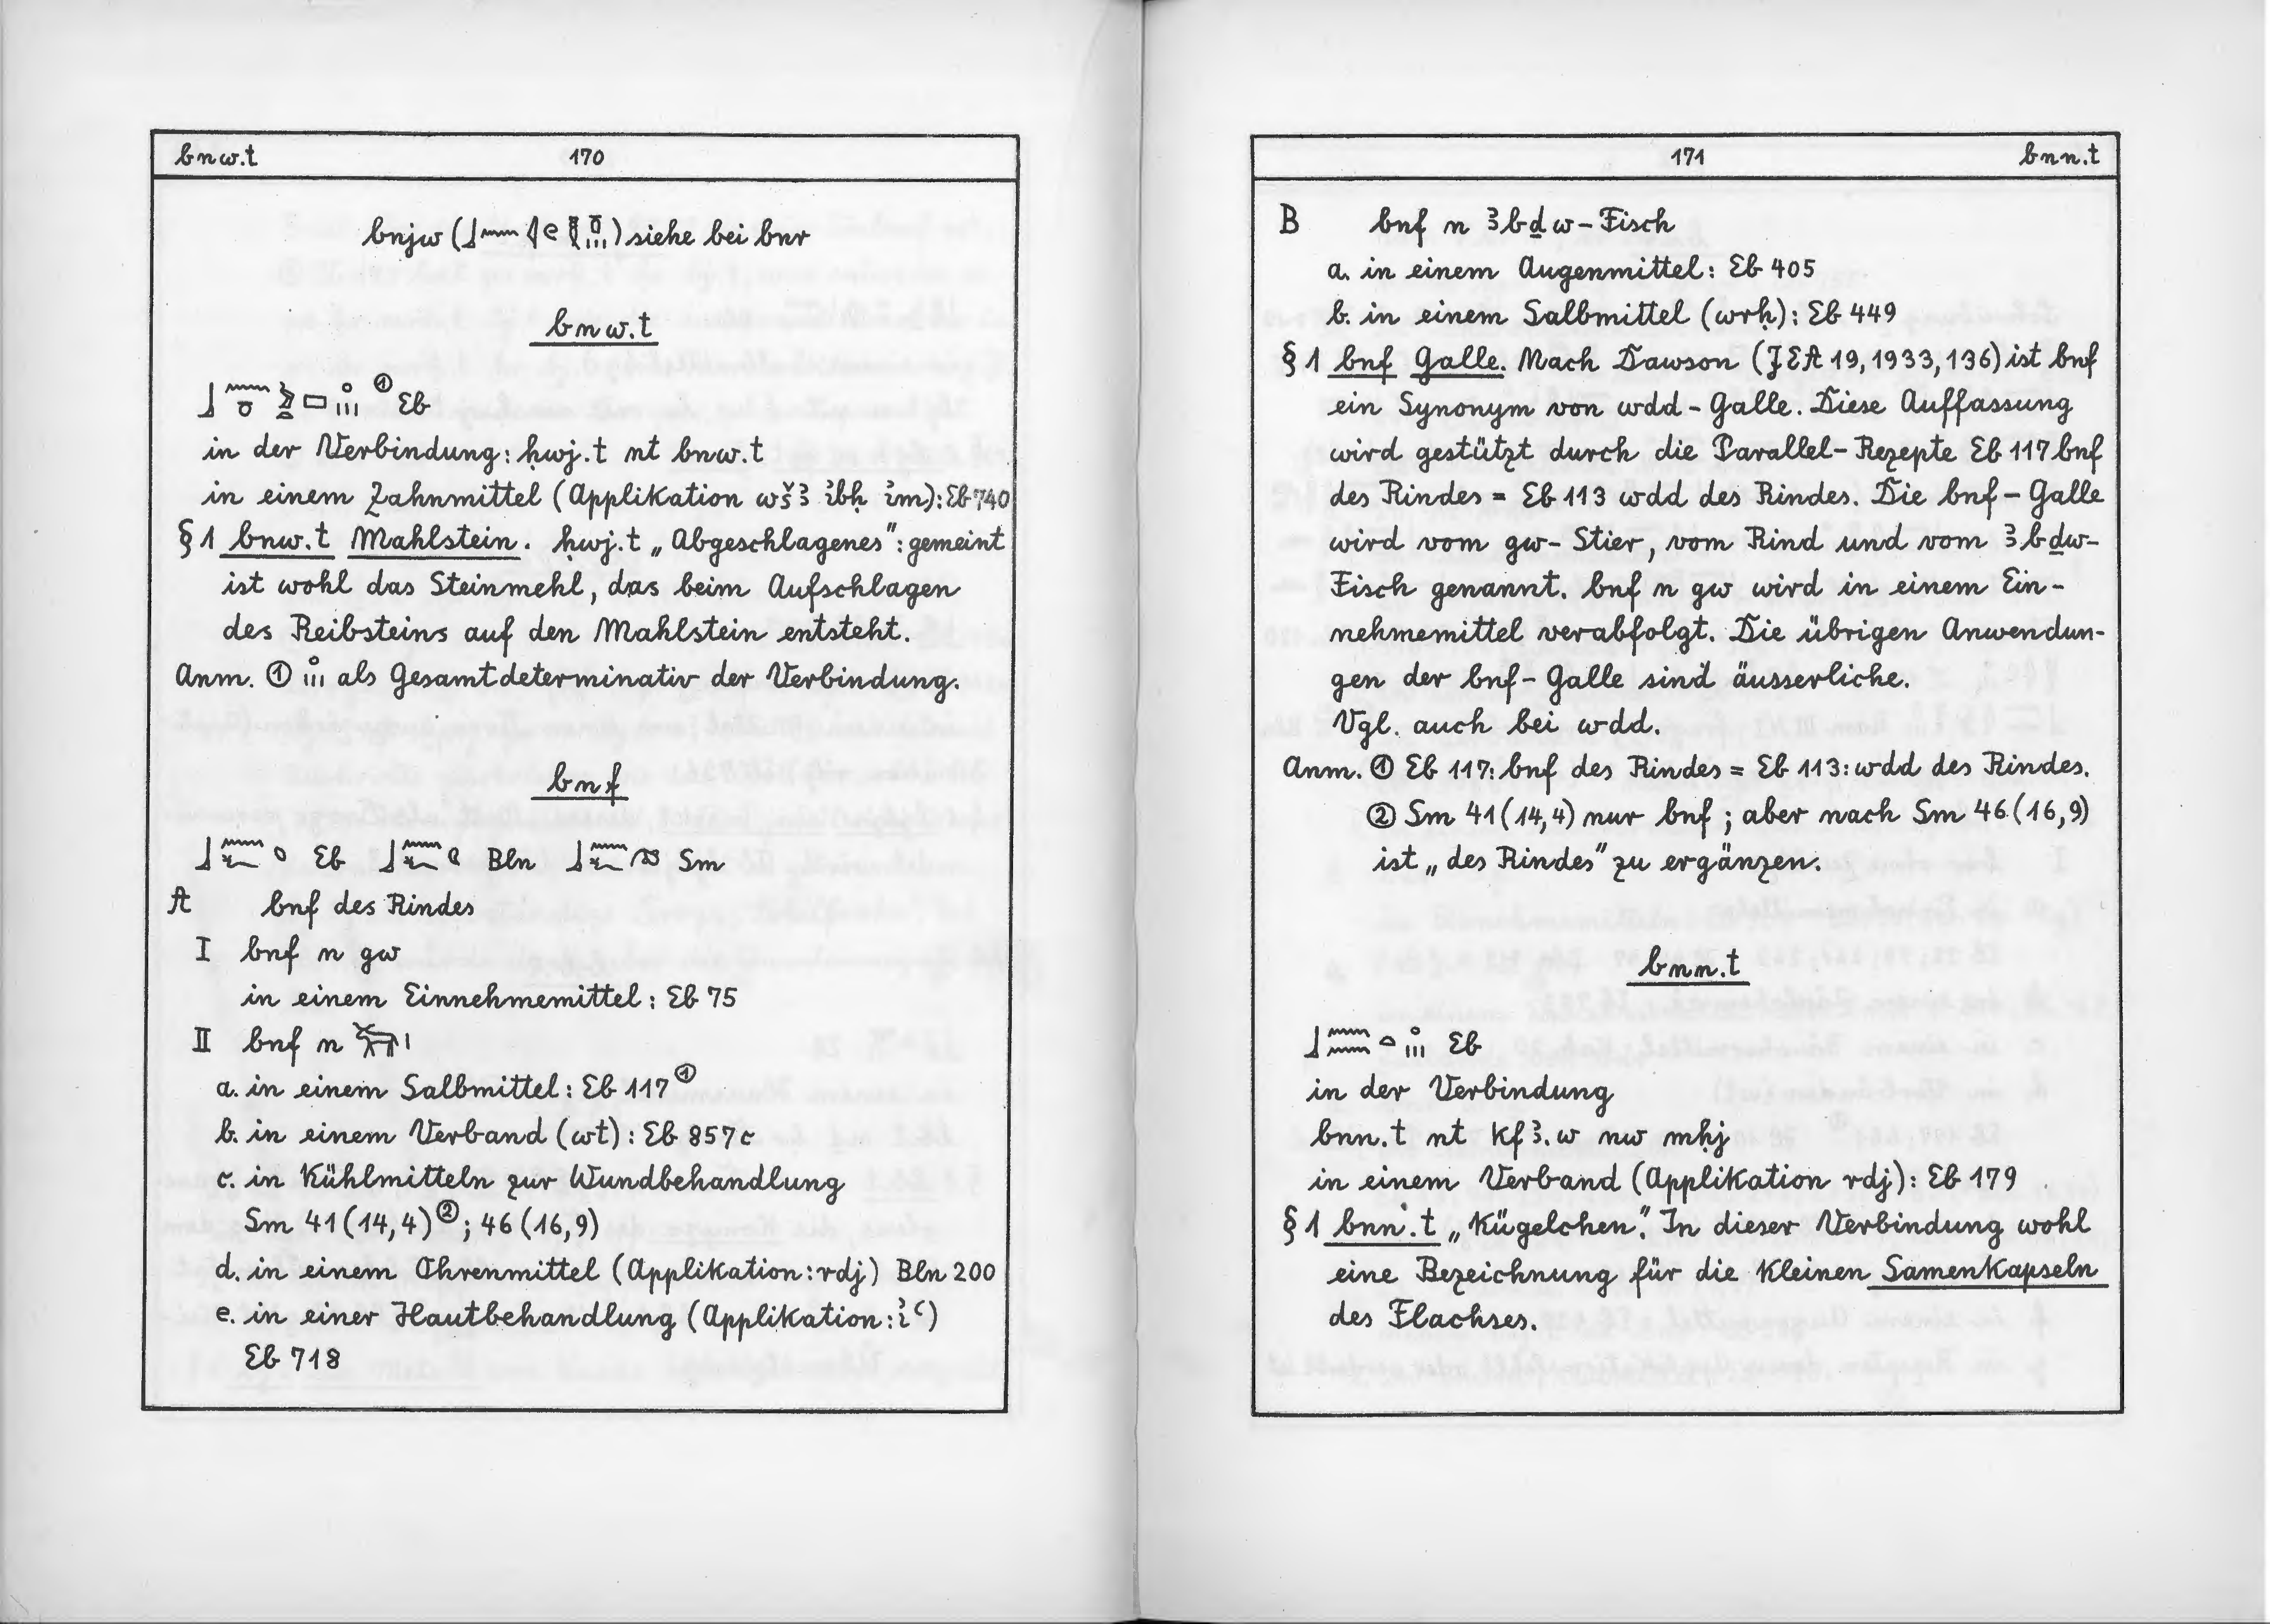 bnw.t 170
bnjw ( ) siehe bei bnr
bnw.t
① Eb
in der Verbindung: ḥwj.t nt bnw.t
in einem Zahnmittel (Applikation wšꜣ ỉbḥ ỉm): Eb 740
§ 1 bnw.t Mahlstein. ḥwj.t „Abgeschlagenes": gemeint
ist wohl das Steinmehl, das beim Aufschlagen
des Reibsteins auf den Mahlstein entsteht.
Anm. ① als Gesamtdeterminativ der Verbindung.
bnf
Eb Bln Sm
A bnf des Rindes
I bnf n gw
in einem Einnehmemittel: Eb 75
II bnf n
a. in einem Salbmittel: Eb 117 ①
b. in einem Verband (wt): Eb 857c
c. in Kühlmitteln zur Wundbehandlung
Sm 41 (14,4) ②; 46 (16,9)
d. in einem Ohrenmittel (Applikation: rdj) Bln 200
e. in einer Hautbehandlung (Applikation: ỉꜥ)
Eb 718
171 bnn.t
B bnf n ꜣbḏw-Fisch
a. in einem Augenmittel: Eb 405
b. in einem Salbmittel (wrḥ): Eb 449
§ 1 bnf Galle. Nach Dawson (JEA 19, 1933, 136) ist bnf
ein Synonym von wdd-Galle. Diese Auffassung
wird gestützt durch die Parallel-Rezepte Eb 117 bnf
des Rindes = Eb 113 wdd des Rindes. Die bnf-Galle
wird vom gw-Stier, vom Rind und vom ꜣbḏw-
Fisch genannt. bnf n gw wird in einem Ein-
nehmemittel verabfolgt. Die übrigen Anwendun-
gen der bnf-Galle sind äusserliche.
Vgl. auch bei wdd.
Anm. ① Eb 117: bnf des Rindes = Eb 113: wdd des Rindes.
② Sm 41 (14,4) nur bnf; aber nach Sm 46 (16,9)
ist „des Rindes" zu ergänzen.
bnn.t
Eb
in der Verbindung
bnn.t nt kfꜣ.w nw mḥj
in einem Verband (Applikation rdj): Eb 179
§ 1 bnn.t „Kügelchen". In dieser Verbindung wohl
eine Bezeichnung für die kleinen Samenkapseln
des Flachses.